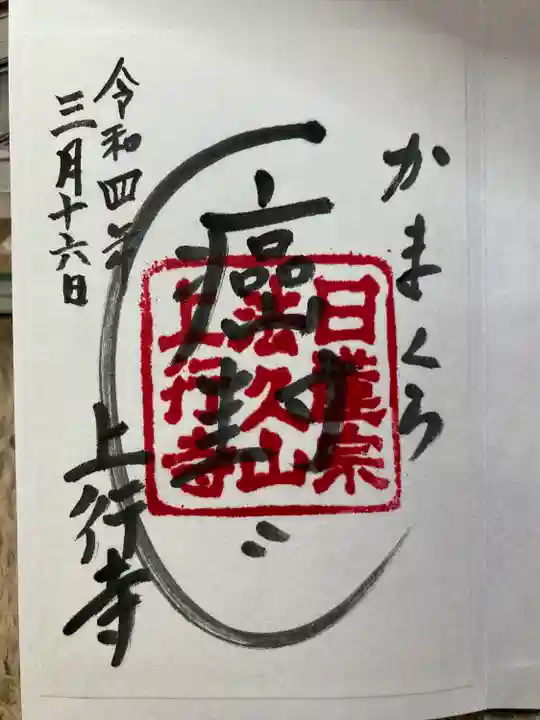 かまくら
癌封じ
日蓮宗
法久山
上行寺
令和四年
三月十六日
上行寺